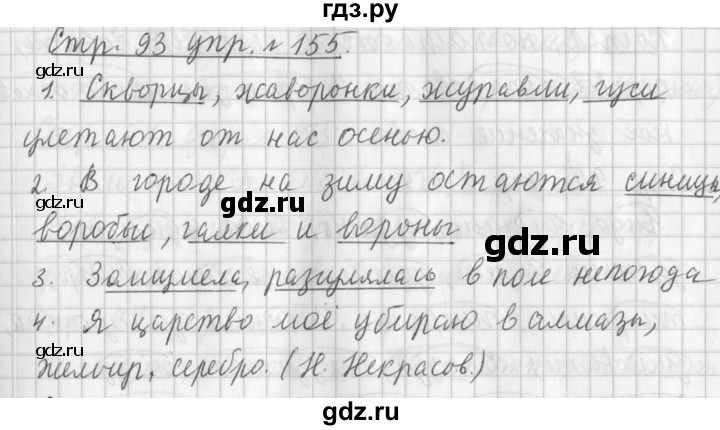 гдз.ру
Стр. 93 упр. № 155.
1. Скворцы, жаворонки, журавли, гуси
улетают от нас осенью.
2. В городе на зиму остаются синицы,
gdz.ru
gdz.ru
воробьи, галки и вороны
3. Зашумела, разгулялась в поле непогода
4. Я царство моё убираю в алмазы,
gdz.ru
gdz.ru
жемчуг, серебро. (Н. Некрасов.)
gdz.ru